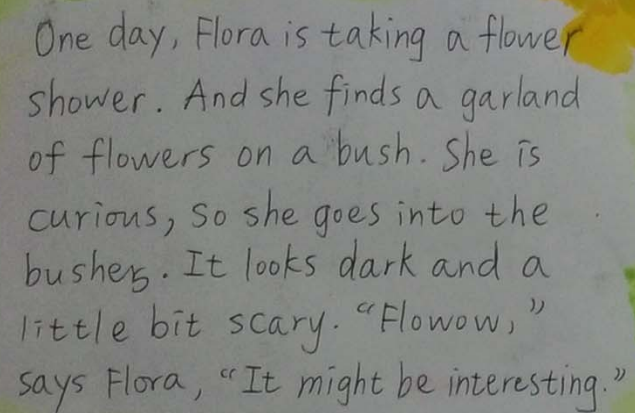 One day, Flora is taking a flower
shower. And she finds a garland
of flowers on a bush. She is
curious, so she goes into the
bushes. It looks dark and a
little bit scary. “Flowow,”
says Flora, “It might be interesting.”